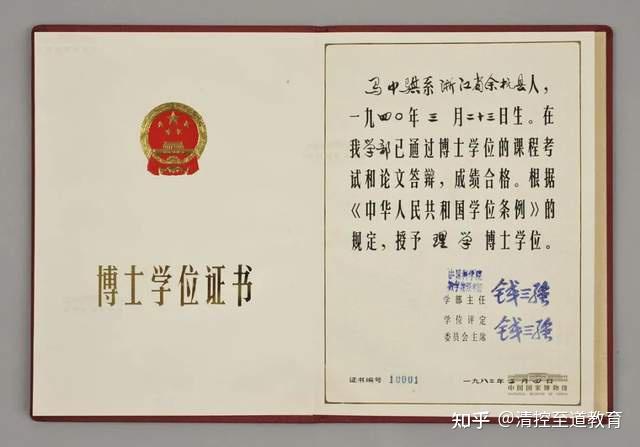 博士学位证书
马中骐系浙江省余杭县人，
一九四〇年三月二十三日生。在
我学部已通过博士学位的课程考
试和论文答辩，成绩合格。根据
《中华人民共和国学位条例》的
规定，授予理学博士学位。
学部主任 钱三强
学位评定
委员会主席 钱三强
证书编号 10001
一九八二年
中国国家博物馆
知乎 @清控至道教育